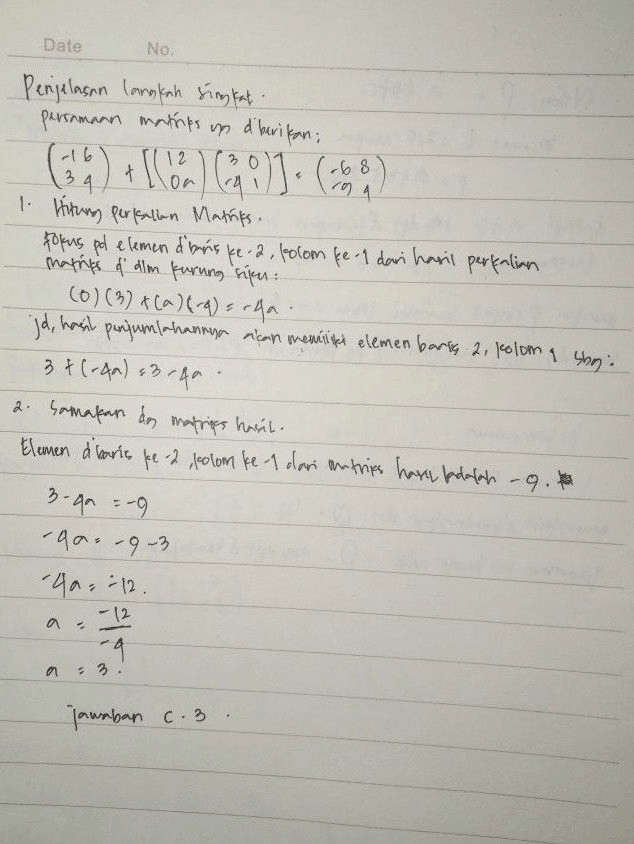 Date No.
Penjelasan langkah singkat.
persamaan matriks yg diberikan;
(-1 6 3 4) + [(1 2 0 a) (3 0 -4 1)] = (-6 8 -9 4)
1. Hitung perkalian Matriks.
fokus pd elemen d'baris ke-2, kolom ke-1 dari hasil perkalian
matriks d' dlm kurung siku:
(0)(3) + (a)(-4) = -4a.
jd, hasil penjumlahannya akan memiliki elemen baris 2, kolom 1 sbg:
3 + (-4a) = 3 - 4a.
2. Samakan dg matriks hasil.
Elemen d'baris ke-2, kolom ke-1 dari matriks hasil adalah -9.
3 - 4a = -9
-4a = -9 -3
-4a = -12.
a = -12
-4
a = 3.
jawaban c. 3.